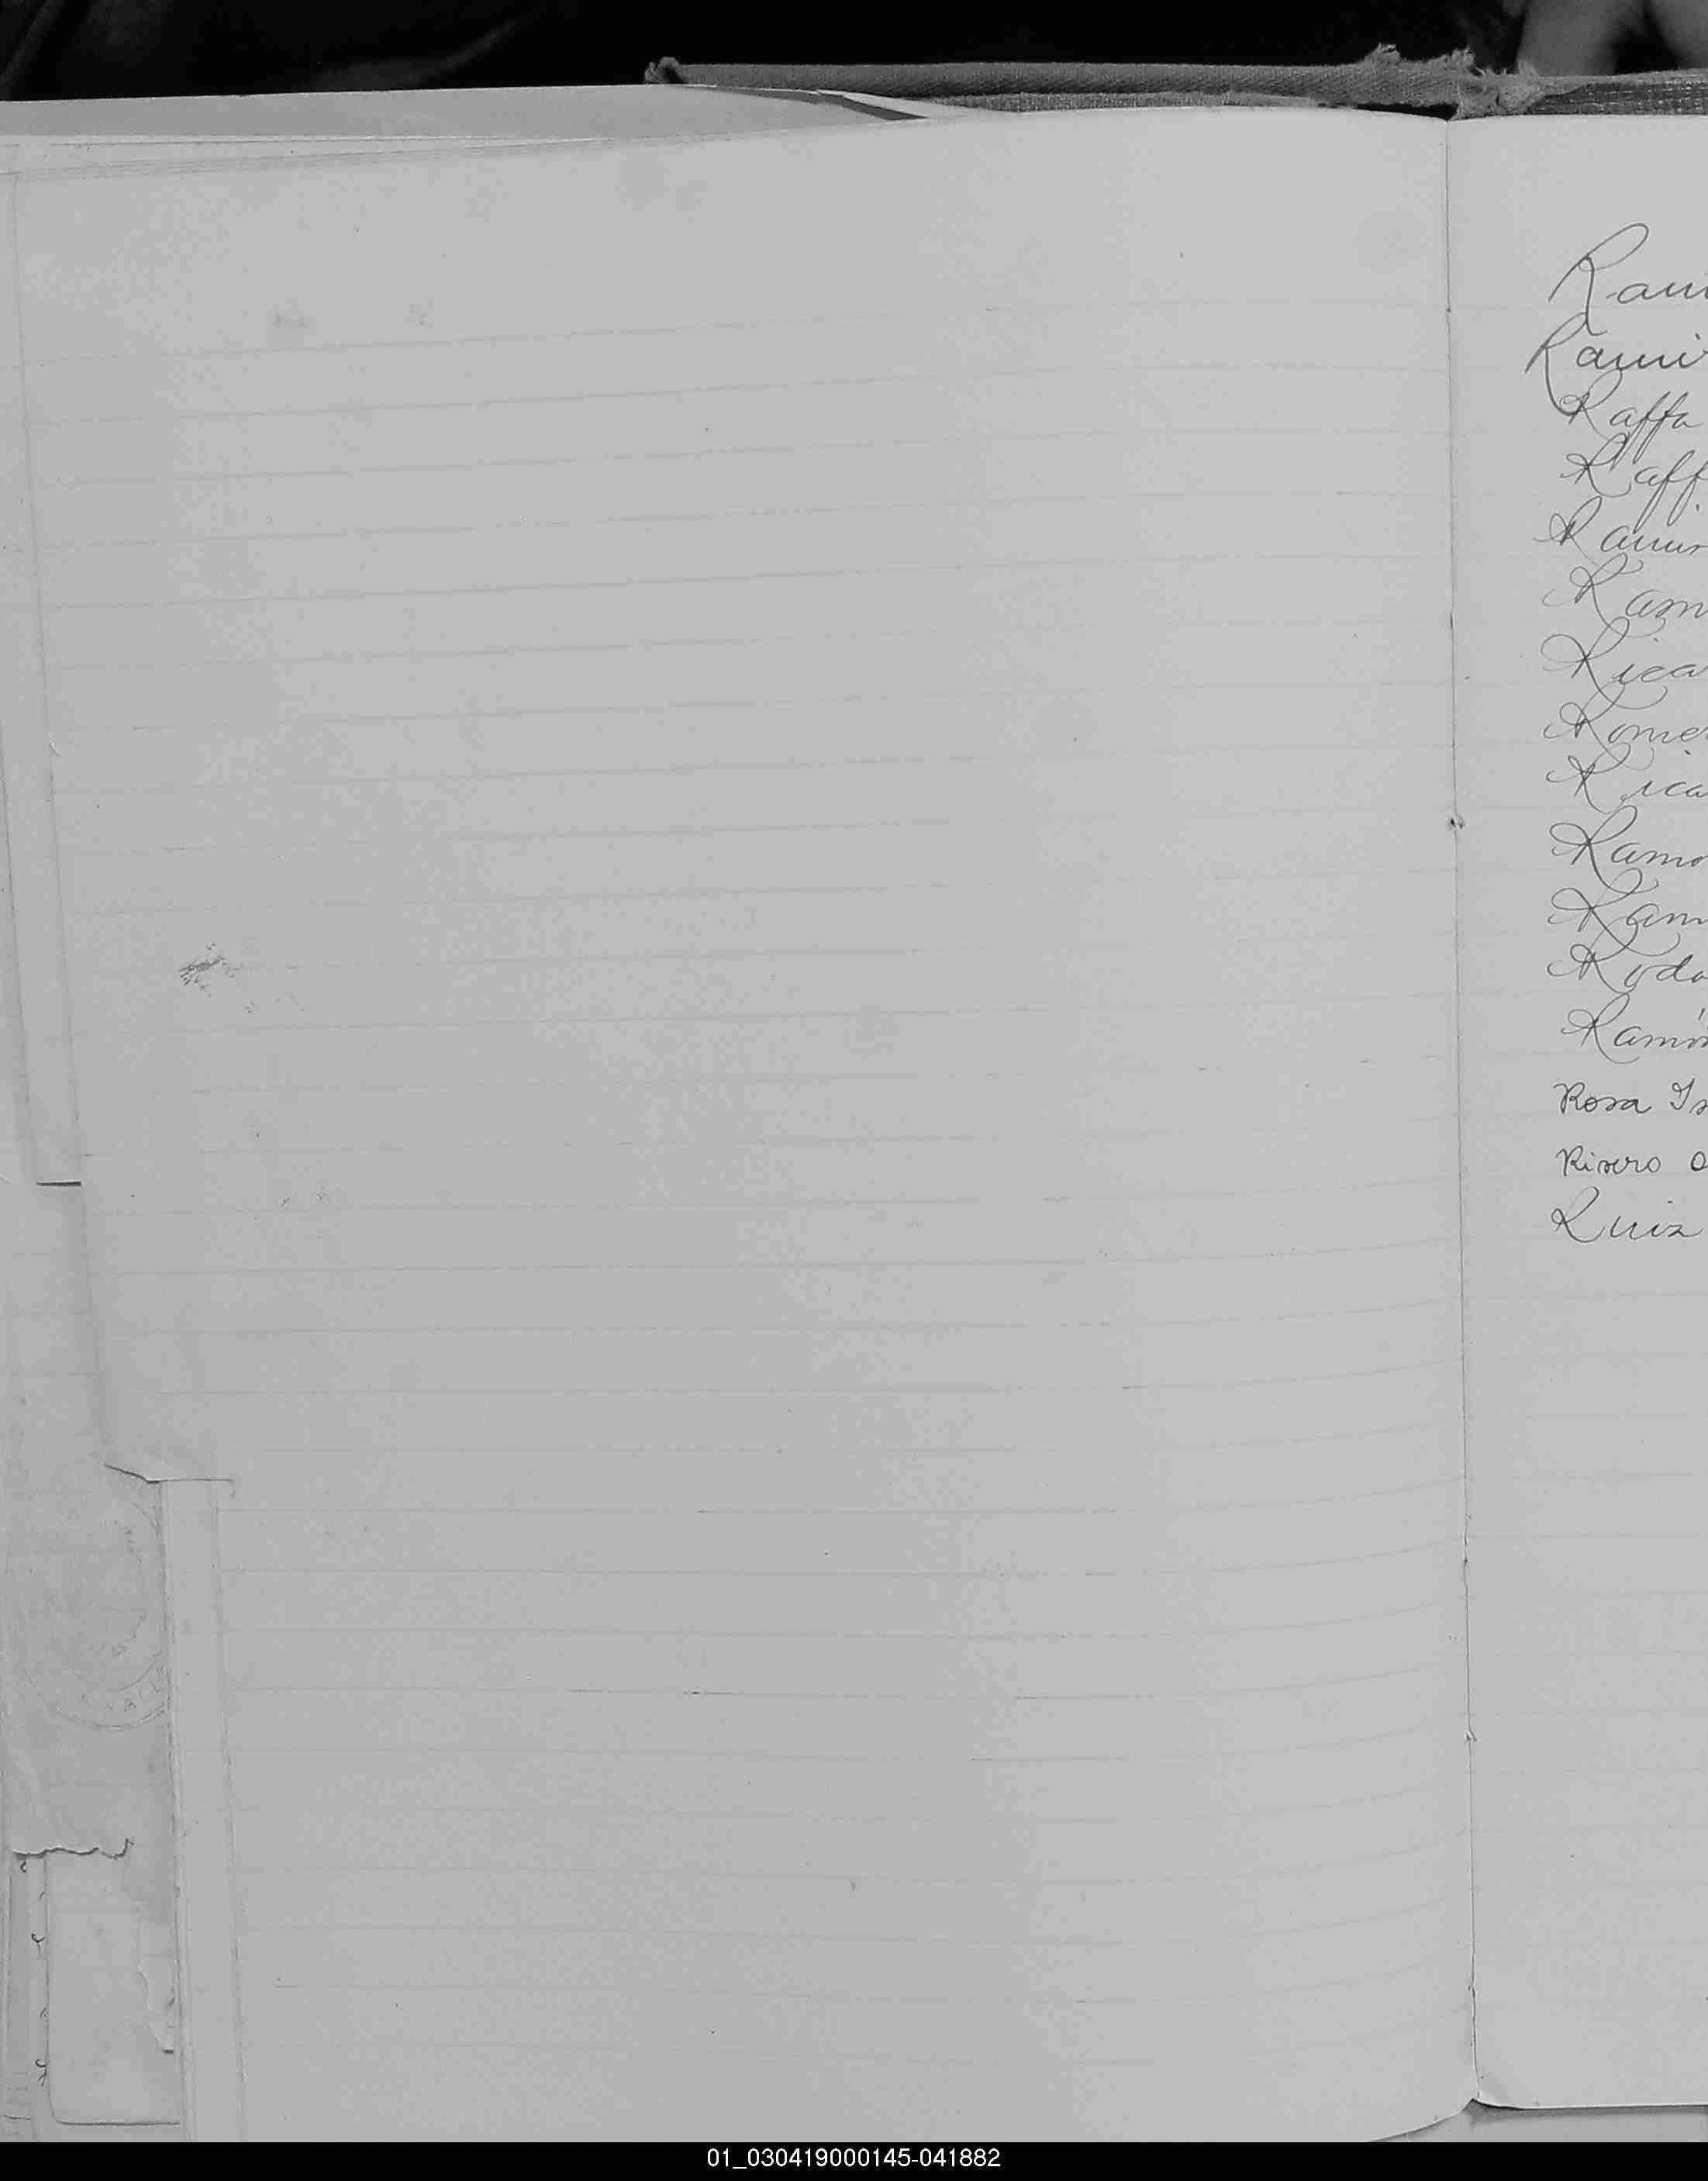 Rami
Rami
Raffa
Raff
Ramir
Ram
Rica
Rome
Rica
Ramo
Ram
Roda
Ramón
Rosa Is
Rivero O
Ruiz
01_030419000145-041882